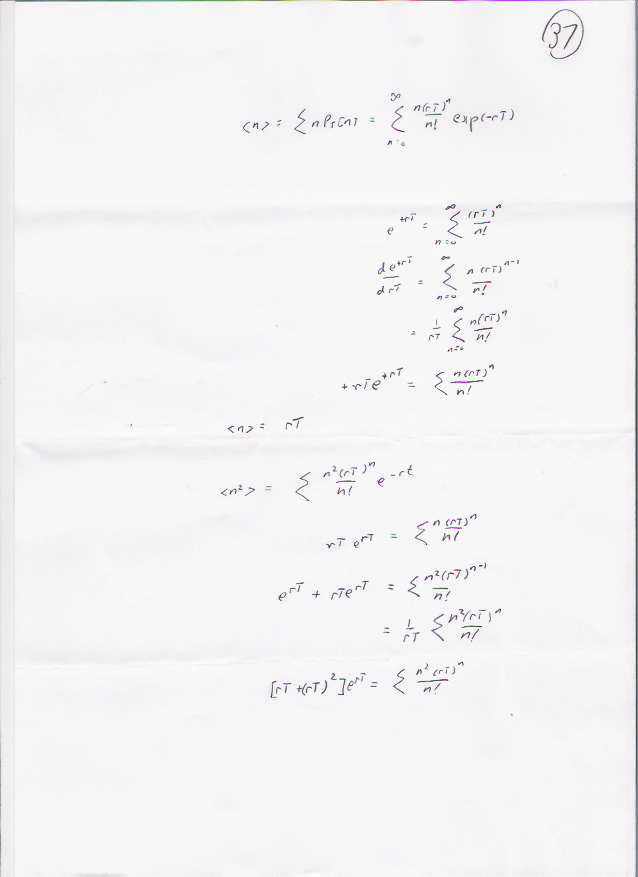 37
<n> = Σ n P_T[n] = Σ_{n=0}^{∞} n(rT)^n / n! exp(-rT)
e^{+rT} = Σ_{n=0}^{∞} (rT)^n / n!
d e^{+rT} / d rT = Σ_{n=0}^{∞} n (rT)^{n-1} / n!
= 1/rT Σ_{n=0}^{∞} n(rT)^n / n!
+rT e^{+rT} = Σ n(rT)^n / n!
<n> = rT
<n²> = Σ n²(rT)^n / n! e^{-rt}
rT e^{rT} = Σ n(rT)^n / n!
e^{rT} + rT e^{rT} = Σ n²(rT)^{n-1} / n!
= 1/rT Σ n²(rT)^n / n!
[rT+(rT)²]e^{rT} = Σ n²(rT)^n / n!